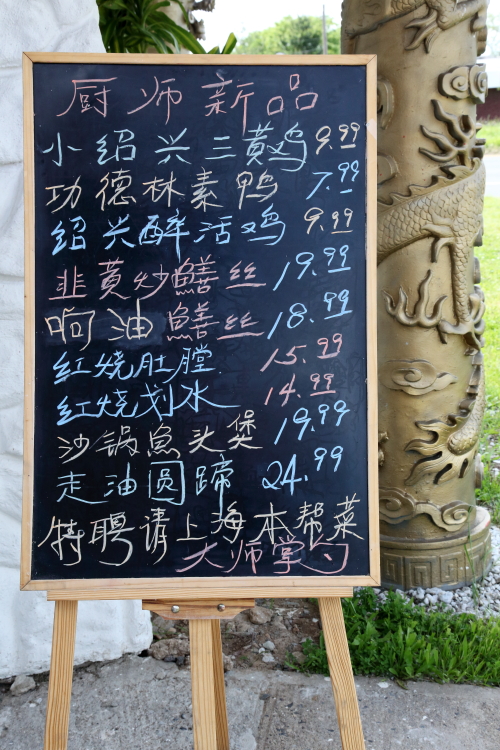 厨师新品
小绍兴三黄鸡 9.99
功德林素鸭 7.99
绍兴醉活鸡 9.99
韭黄炒鱔丝 19.99
响油鱔丝 18.99
红烧肚膛 15.99
红烧划水 14.99
沙锅魚头煲 19.99
走油圆蹄 24.99
特聘请上海本帮菜
大师掌勺